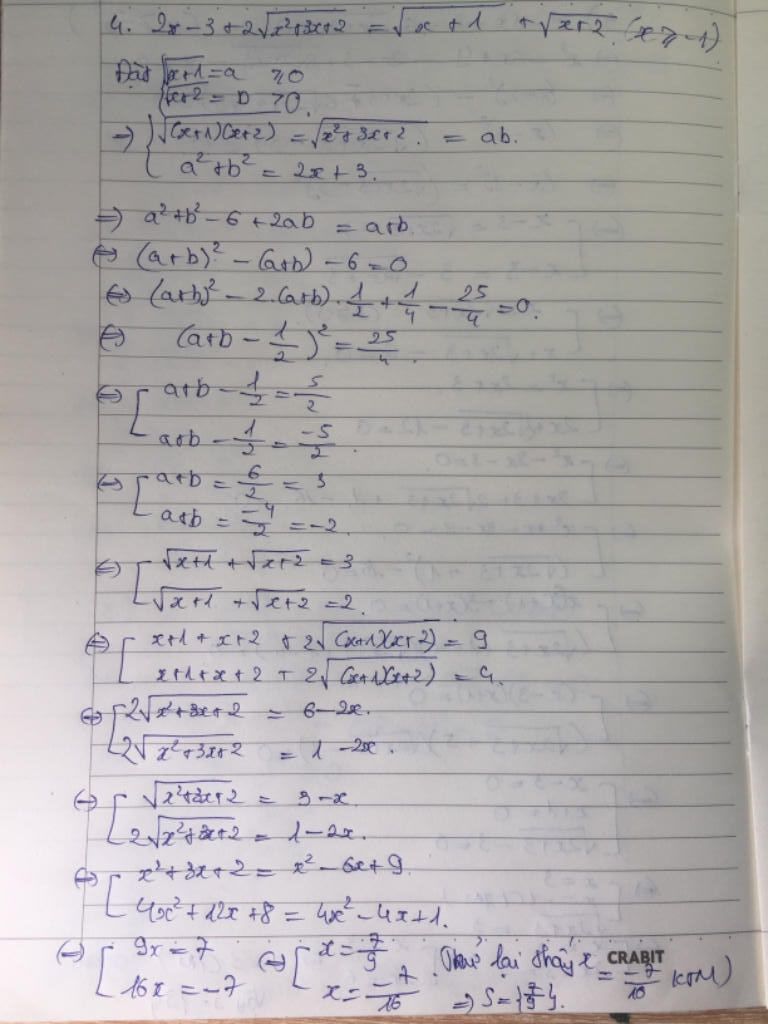 4. 2x - 3 + 2√(x²+3x+2) = √(x+1) + √(x+2) (x ≥ -1)
Đặt { √(x+1) = a ≥ 0
√(x+2) = b ≥ 0
⇒ { √((x+1)(x+2)) = √(x²+3x+2) = ab.
a² + b² = 2x + 3.
⇒ a² + b² - 6 + 2ab = a+b.
⇔ (a+b)² - (a+b) - 6 = 0
⇔ (a+b)² - 2.(a+b).1/2 + 1/4 - 25/4 = 0.
⇔ (a+b - 1/2)² = 25/4.
⇔ [ a+b - 1/2 = 5/2
a+b - 1/2 = -5/2.
⇔ [ a+b = 6/2 = 3
a+b = -4/2 = -2.
⇔ [ √(x+1) + √(x+2) = 3
√(x+1) + √(x+2) = 2.
⇔ [ x+1 + x+2 + 2√((x+1)(x+2)) = 9
x+1+x+2 + 2√((x+1)(x+2)) = 4.
⇔ [ 2√(x²+3x+2) = 6-2x.
2√(x²+3x+2) = 1 -2x.
⇔ [ √(x²+3x+2) = 3-x.
2√(x²+3x+2) = 1-2x.
⇔ [ x²+3x+2 = x² - 6x+9.
4x²+12x+8 = 4x² - 4x+1.
⇔ [ 9x = 7 ⇔ [ x = 7/9 Thử lại thấy x = -7/16 KTM)
16x = -7 x = -7/16 ⇒ S = {7/9}.
CRABIT